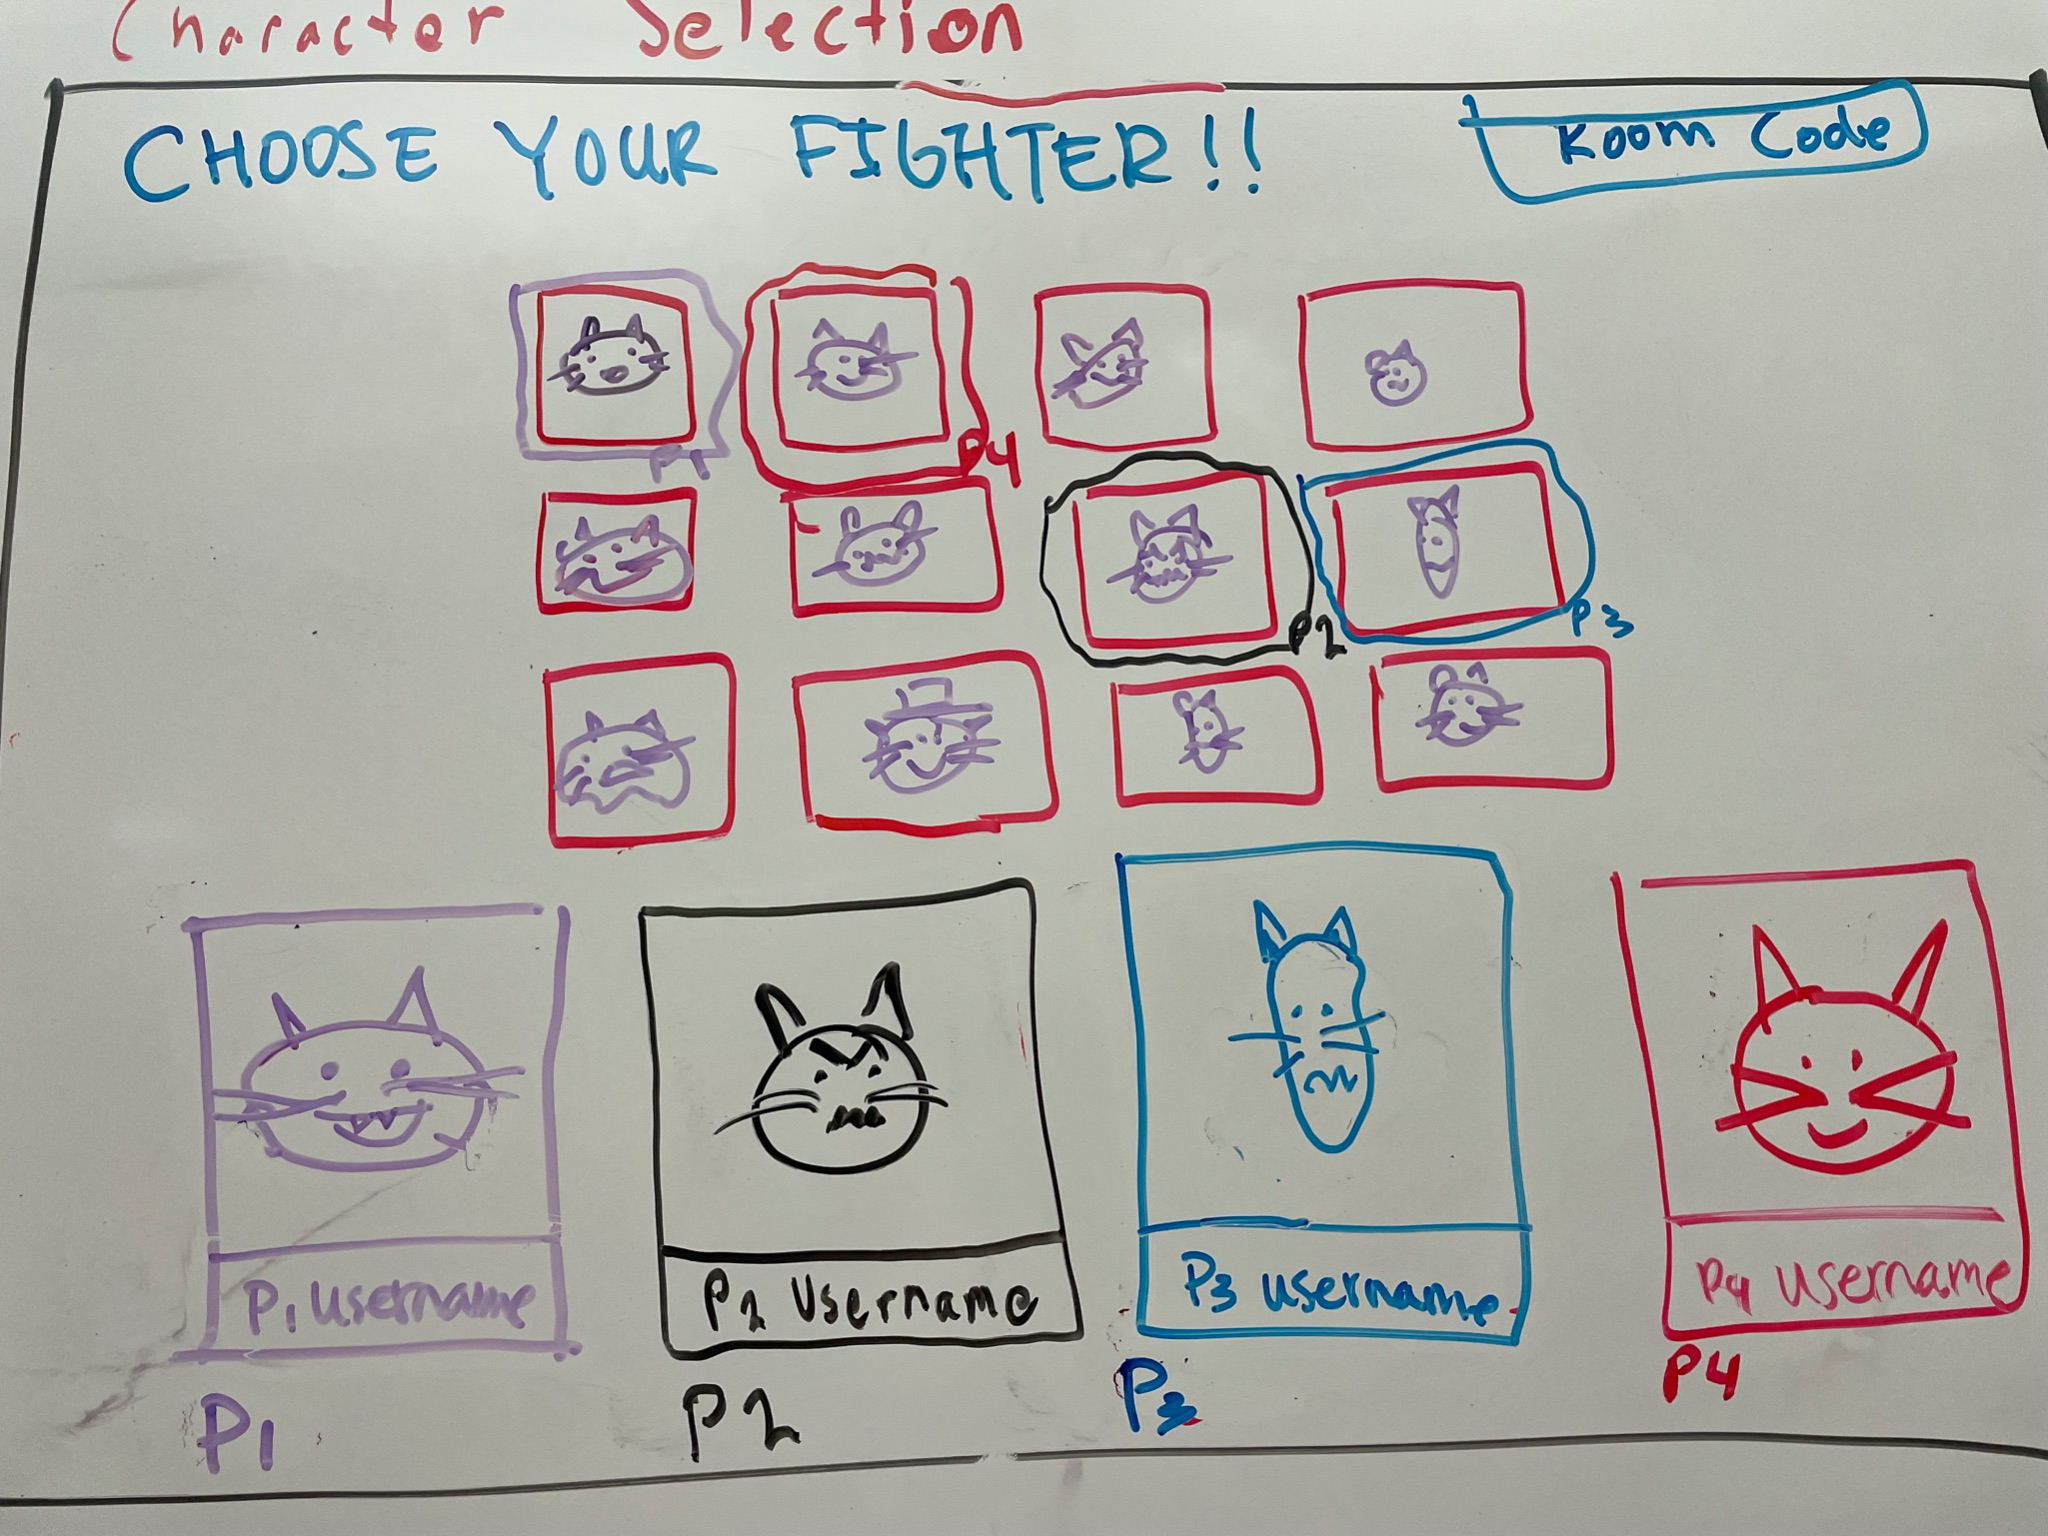 Character Selection
CHOOSE YOUR FIGHTER!!
Room Code
P1
P4
P2
P3
P1 Username
P2 Username
P3 username
P4 Username
P1
P2
P3
P4